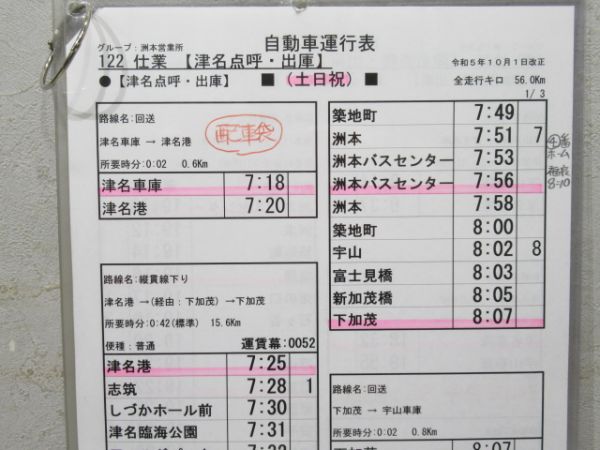 グループ:洲本営業所
自動車運行表
122 仕業 【津名点呼・出庫】
令和5年10月1日改正
●【津名点呼・出庫】 ■ (土日祝) ■ 全走行キロ 56.0Km
1/ 3
路線名:回送
配車袋
津名車庫 → 津名港
所要時分:0:02 0.6Km
津名車庫 7:18
津名港 7:20
路線名:縦貫線下り
津名港 →(経由:下加茂) →下加茂
所要時分:0:42(標準) 15.6Km
便種:普通 運賃幕:0052
津名港 7:25
志筑 7:28 1
しづかホール前 7:30
津名臨海公園 7:31
築地町 7:49
洲本 7:51 7
洲本バスセンター 7:53
洲本バスセンター 7:56
洲本 7:58
築地町 8:00
宇山 8:02 8
富士見橋 8:03
新加茂橋 8:05
下加茂 8:07
④番
ホーム
8:10
路線名:回送
下加茂 → 宇山車庫
所要時分:0:02 0.8Km
8:07